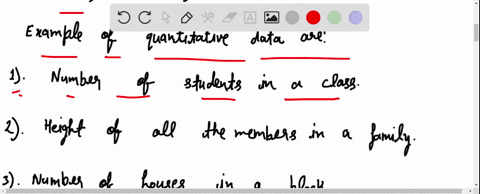 Example of quantitative data are:
1). Number of students in a class.
2). Height of all the members in a family.
3). Number of houses in a block